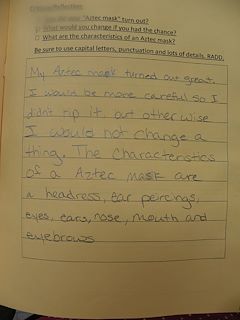 Critique/Reflection:
How did your "Aztec mask" turn out?
What would you change if you had the chance?
What are the characteristics of an Aztec mask?
Be sure to use capital letters, punctuation and lots of details. RADD.
My Aztec mask turned out great.
I would be more careful so I
didn't rip it, but other wise
I would not change a
thing. The characteristics
of a Aztec mask are
a headress, ear peircings,
eyes, ears, nose, mouth and
eyebrows